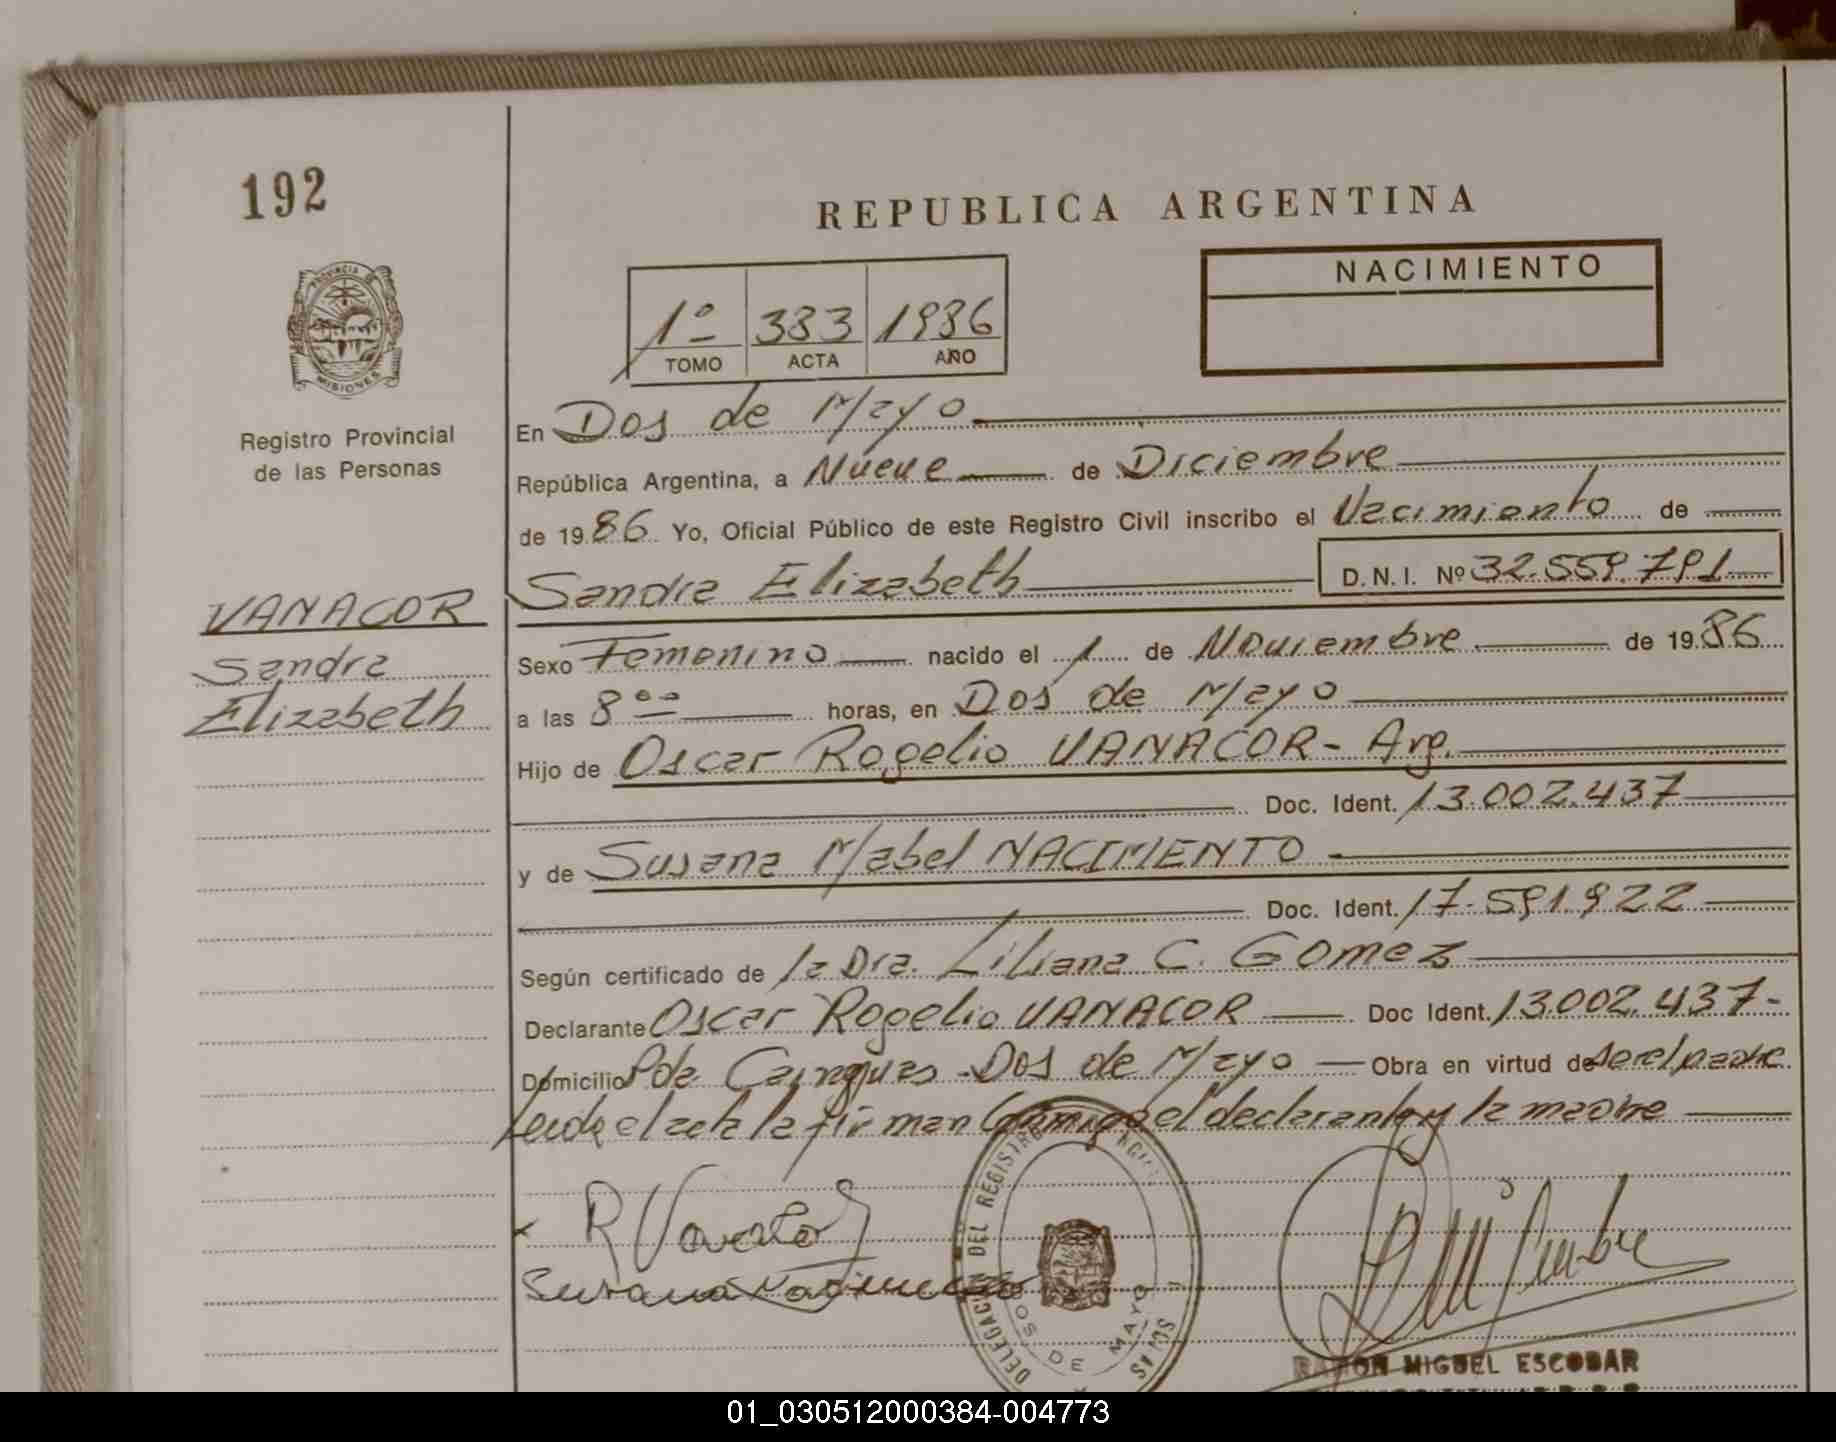 192
REPUBLICA ARGENTINA
NACIMIENTO
1º 383 1986
TOMO ACTA AÑO
PROVINCIA DE
MISIONES
Registro Provincial
de las Personas
En Dos de Mayo
República Argentina, a Nueve de Diciembre
de 1986 Yo, Oficial Público de este Registro Civil inscribo el Nacimiento de
Sandra Elizabeth D.N.I. Nº 32.559.791
VANACOR
Sandra
Elizabeth
Sexo Femenino nacido el 1 de Noviembre de 1986
a las 8 ºº horas, en Dos de Mayo
Hijo de Oscar Rogelio VANACOR- Arg.
Doc. Ident. 13.002.437
y de Susana Mabel NACIMIENTO
Doc. Ident. 17.591.922
Según certificado de la Dra. Liliana C. Gomez
Declarante Oscar Rogelio VANACOR Doc Ident. 13.002.437-
Domicilio Pde. Dos de Mayo Obra en virtud de ser el padre
Leida el acta la firman Conmigo el declarante y la madre
Susana Nacimiento
DELEGACION DEL REGISTRO
DOS DE MAYO
RAMON MIGUEL ESCOBAR
01_030512000384-004773